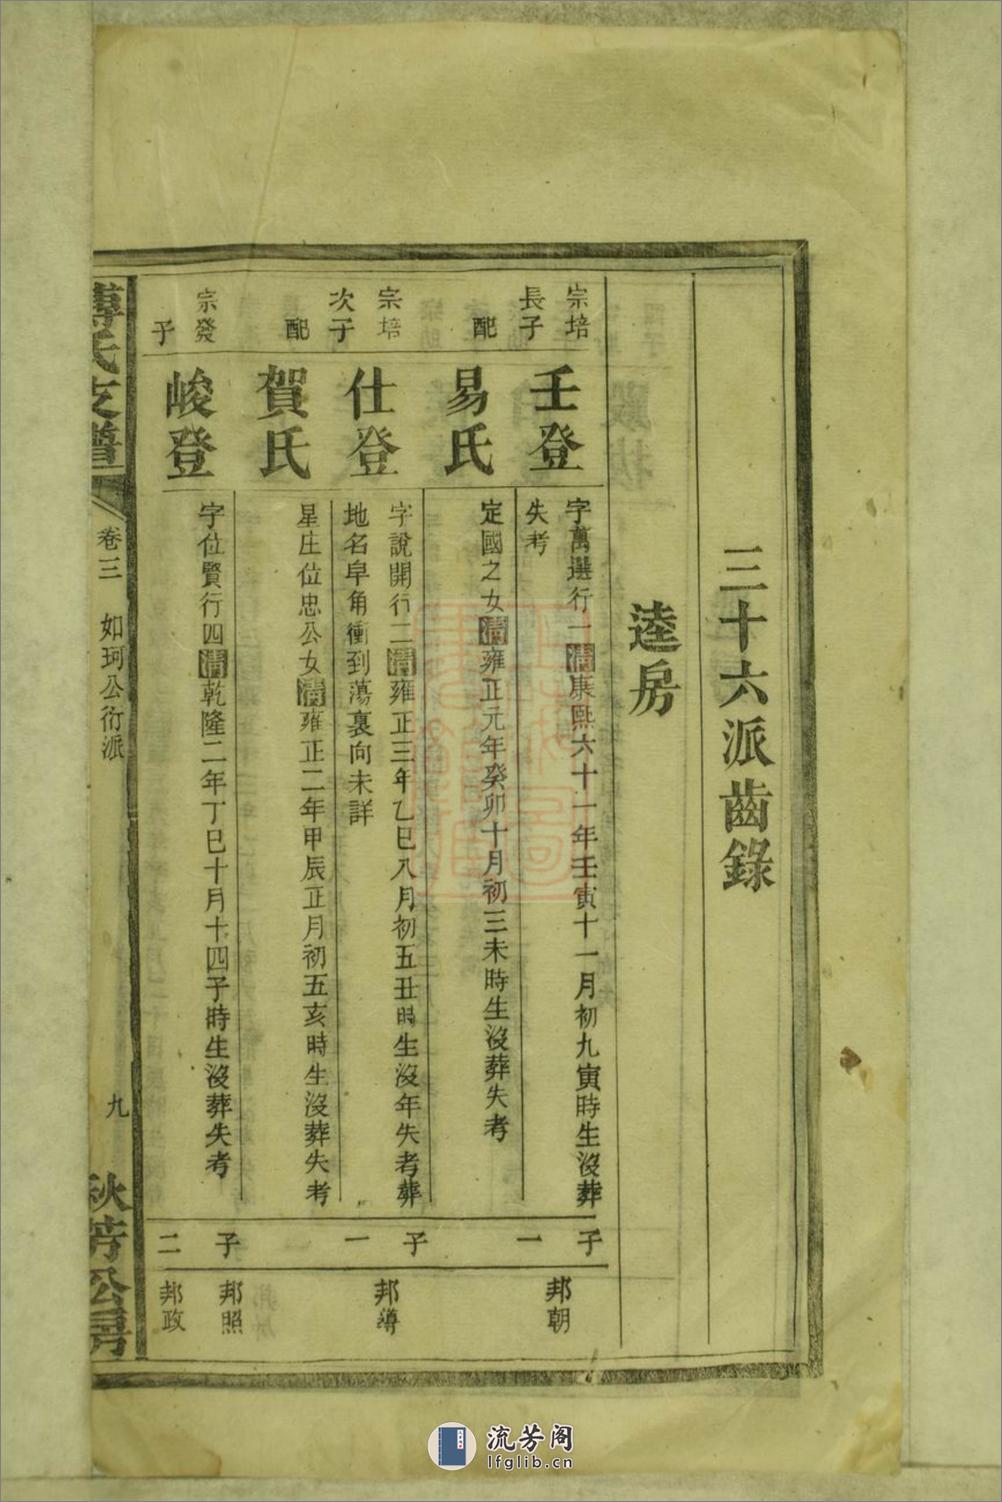 三十六派齒錄
逵房
宗培
長子
壬登
字萬選行一清康熙六十一年壬寅十一月初九寅時生沒葬
失考
子一
邦朝
配
易氏
定國之女清雍正元年癸卯十月初三未時生沒葬失考
宗培
次子
仕登
字說開行二清雍正三年乙巳八月初五丑時生沒年失考葬
地名皁角衝到蕩裏向未詳
子一
邦濤
配
賀氏
星庄位忠公女清雍正二年甲辰正月初五亥時生沒葬失考
宗發
子
峻登
字位賢行四清乾隆二年丁巳十月十四子時生沒葬失考
子二
邦照
邦政
傅氏支譜
卷三 如珂公衍派
九
秋芳公房
流芳阁
lfglib.cn